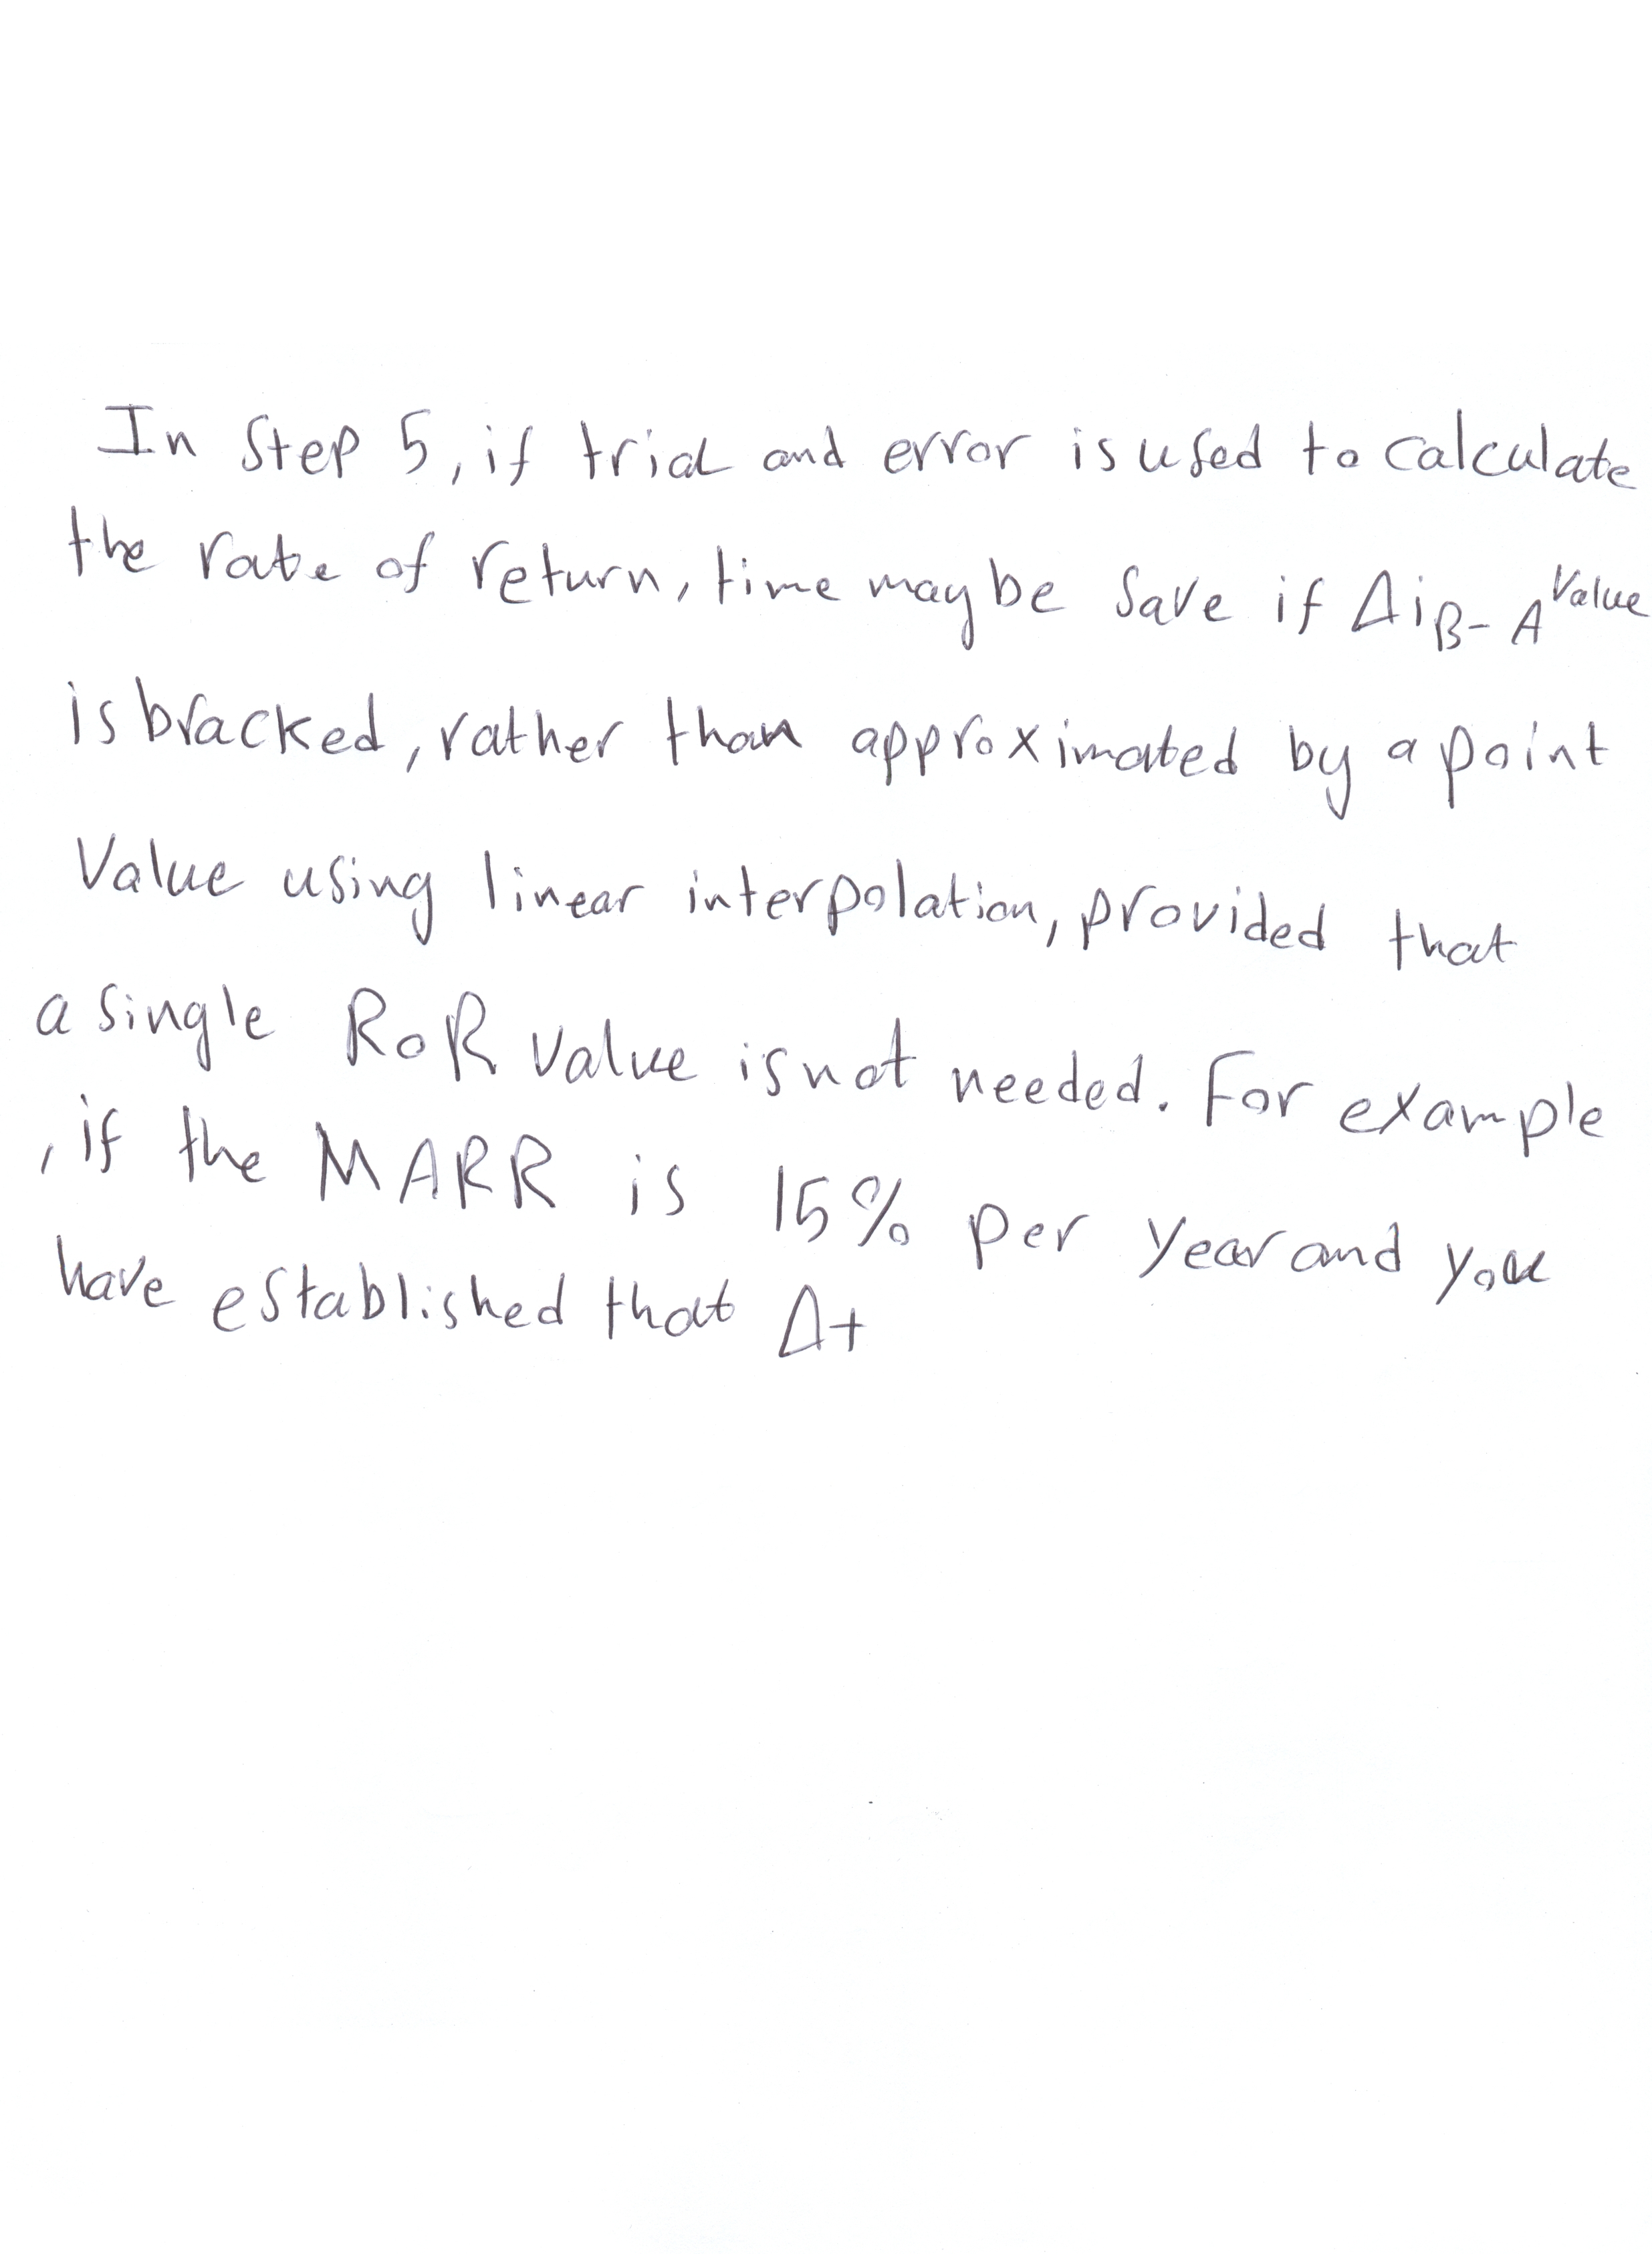 In Step 5, if trial and error is used to calculate
the rate of return, time may be save if Δi B-A Value
is bracked, rather than approximated by a point
Value using linear interpolation, provided that
a single RoR value is not needed. For example
, if the MARR is 15% per year and you
have established that Δ+